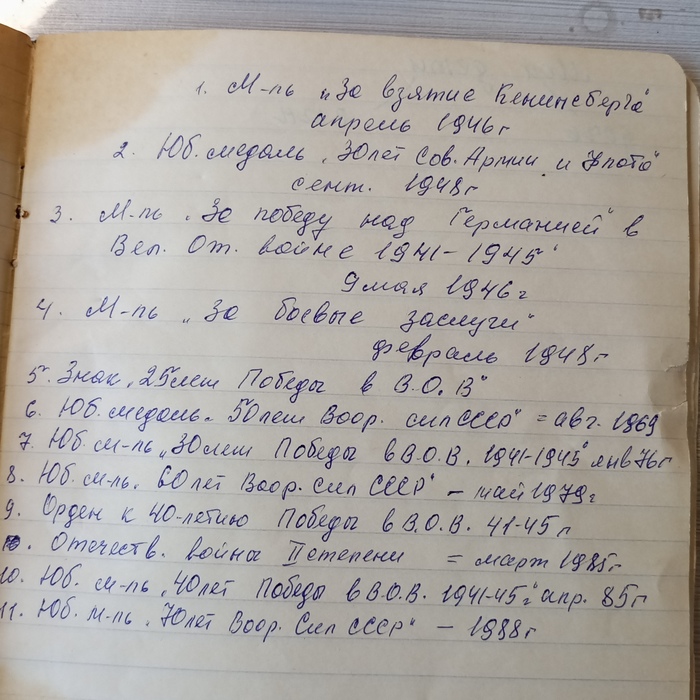 1. М-ль „За взятие Кенинсберга"
апрель 1946г
2. Юб. медаль „30 лет Сов. Армии и Флота"
сент. 1948г
3. М-ль „За победу над Германией" в
Вел. От. войне 1941-1945"
9 мая 1946г
4. М-ль „За боевые заслуги"
февраль 1948г
5. Знак „25 лет Победы в В.О.В"
6. Юб. медаль „50 лет Воор. сил СССР" = авг. 1969
7. Юб. м-ль „30 лет Победы в В.О.В. 1941-1945" янв 76г
8. Юб. м-ль „60 лет Воор. Сил СССР" - май 1979г
9. Орден к 40-летию Победы в В.О.В. 41-45г
Отечеств. войны II степени = март 1985г
10. Юб. м-ль „40 лет Победы в В.О.В. 1941-45г" апр. 85г
11. Юб. м-ль „70 лет Воор. Сил СССР" - 1988г